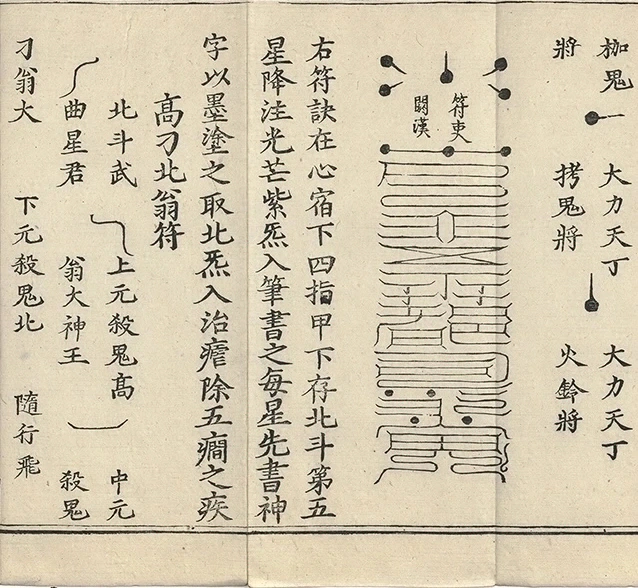 枷鬼 大力天丁 大力天丁
將 拷鬼將 火鈴將
符吏
關漢
右符訣在心宿下四指甲下存北斗第五
星降注光芒紫炁入筆書之每星先書神
字以墨塗之取北炁入治瘧除五癇之疾
高刁北翁符
北斗武 上元殺鬼高 中元
曲星君 翁大神王 殺鬼
刁翁大 下元殺鬼北 隨行飛